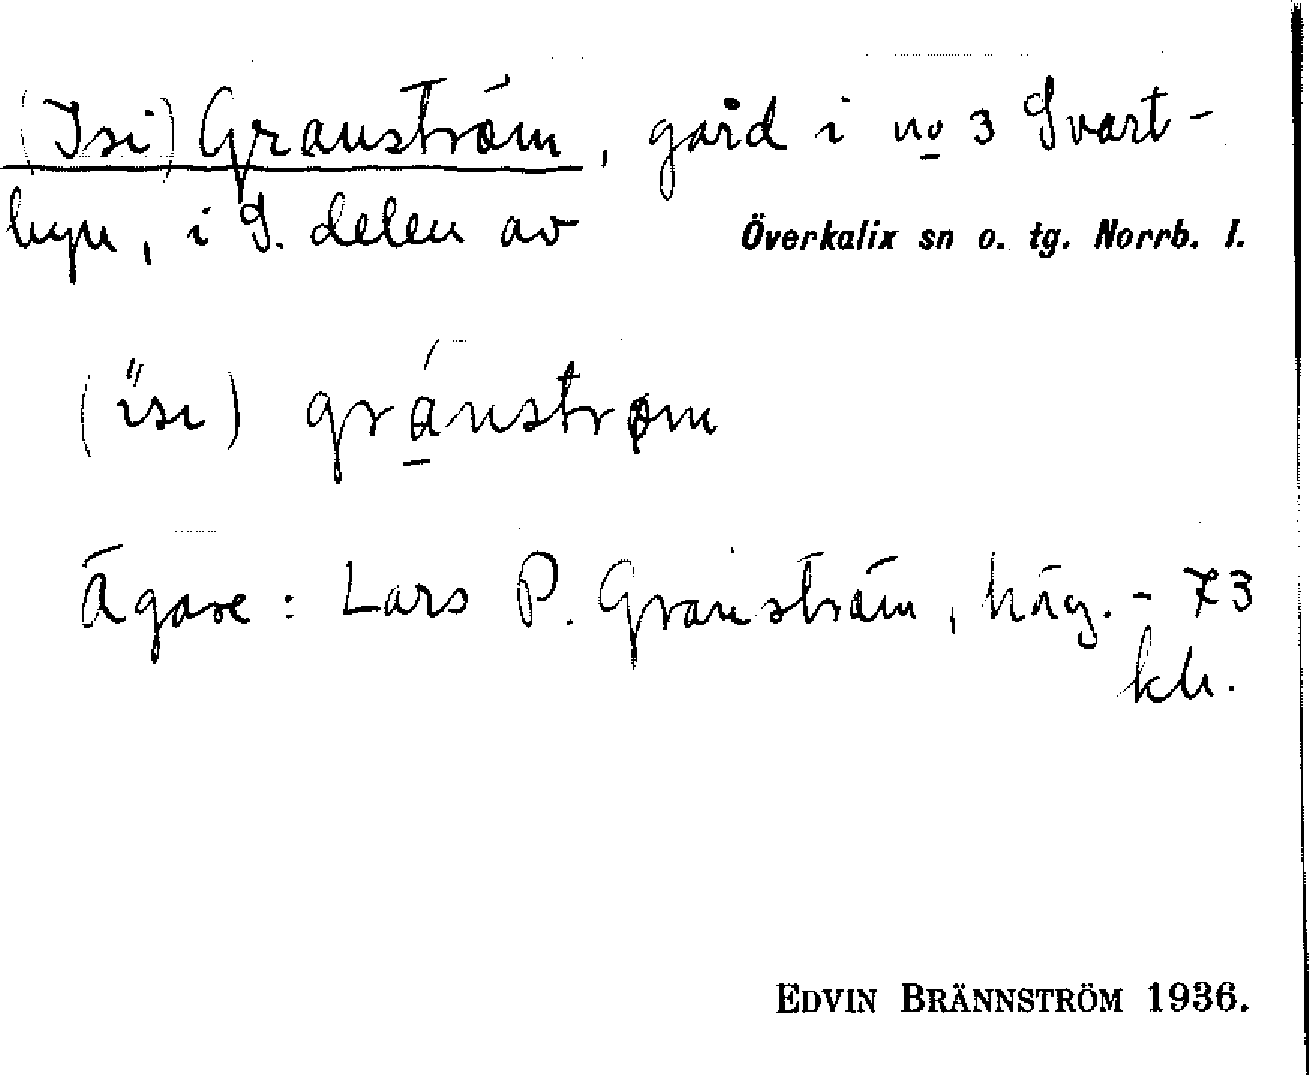 (Isi) Granström, gård i no 3 Svart-
byn, i S. delen av
Överkalix sn o. tg. Norrb. l.
(ïsi) gránstrøm
Ägare: Lars P. Granström, häg. - 73
kh.
EDVIN BRÄNNSTRÖM 1936.